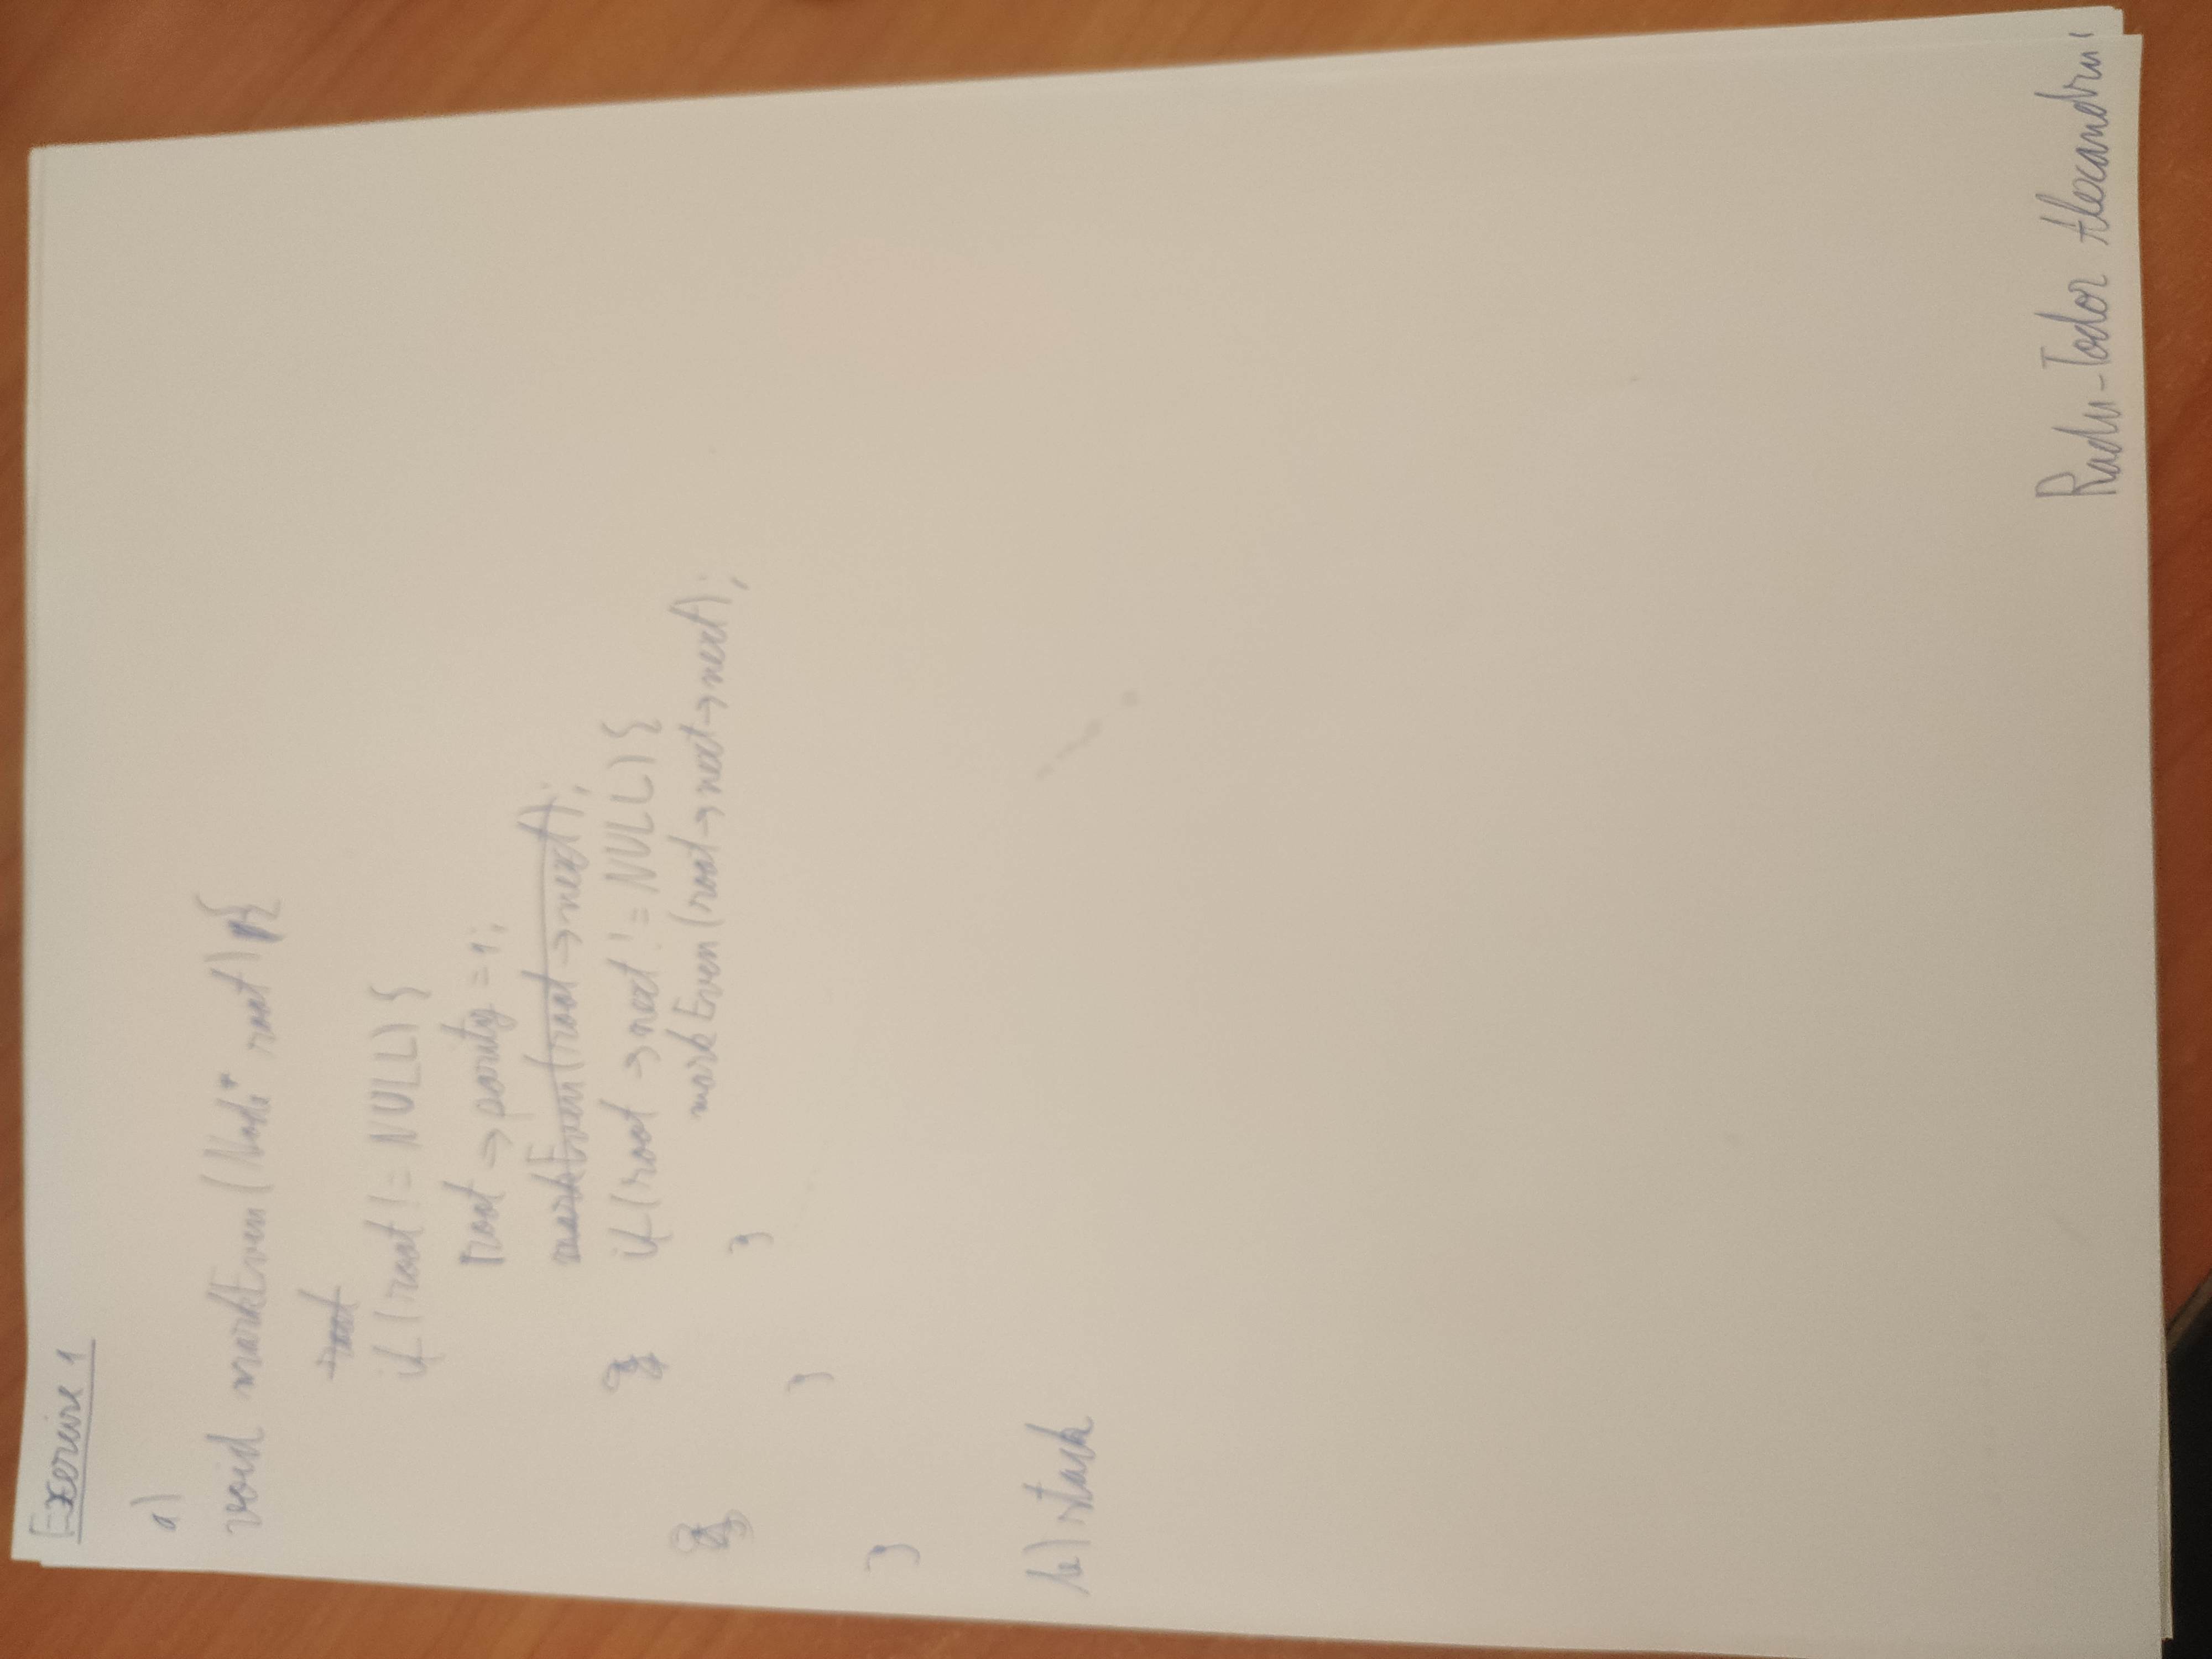 Exercise 1
a)
void markEven(Node* root) {
root
if (root != NULL) {
root → parity = 1;
markEven(root → next);
if (root → next != NULL) {
markEven(root → next → next);
}
}
}
b) stack
Radu-Todor Alexandru